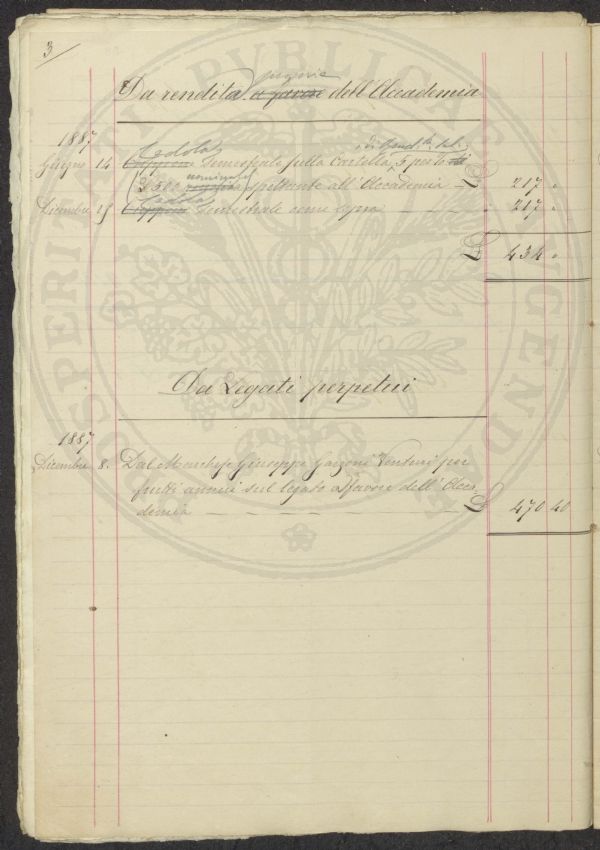 3
proprie
Da rendita a favore dell'Accademia
1887
Cedola di Rend.ta del
Giugno 14 Coupons Semestrale sulla Cartella 5 per %
nominale
£ 500 spettante all'Accademia — £ 217 "
Cedola
Dicembre 15 Coupons Semestrale come sopra — — — 217 "
£ 434 "
Da Legati perpetui
1887
Dicembre 8. Dal Marchese Giuseppe Garzoni Venturi per
frutti annui sul legato a favore dell'Acca-
demia — — — — — — — £ 470 40
PROSPERITATI PUBLICAE AUGENDAE